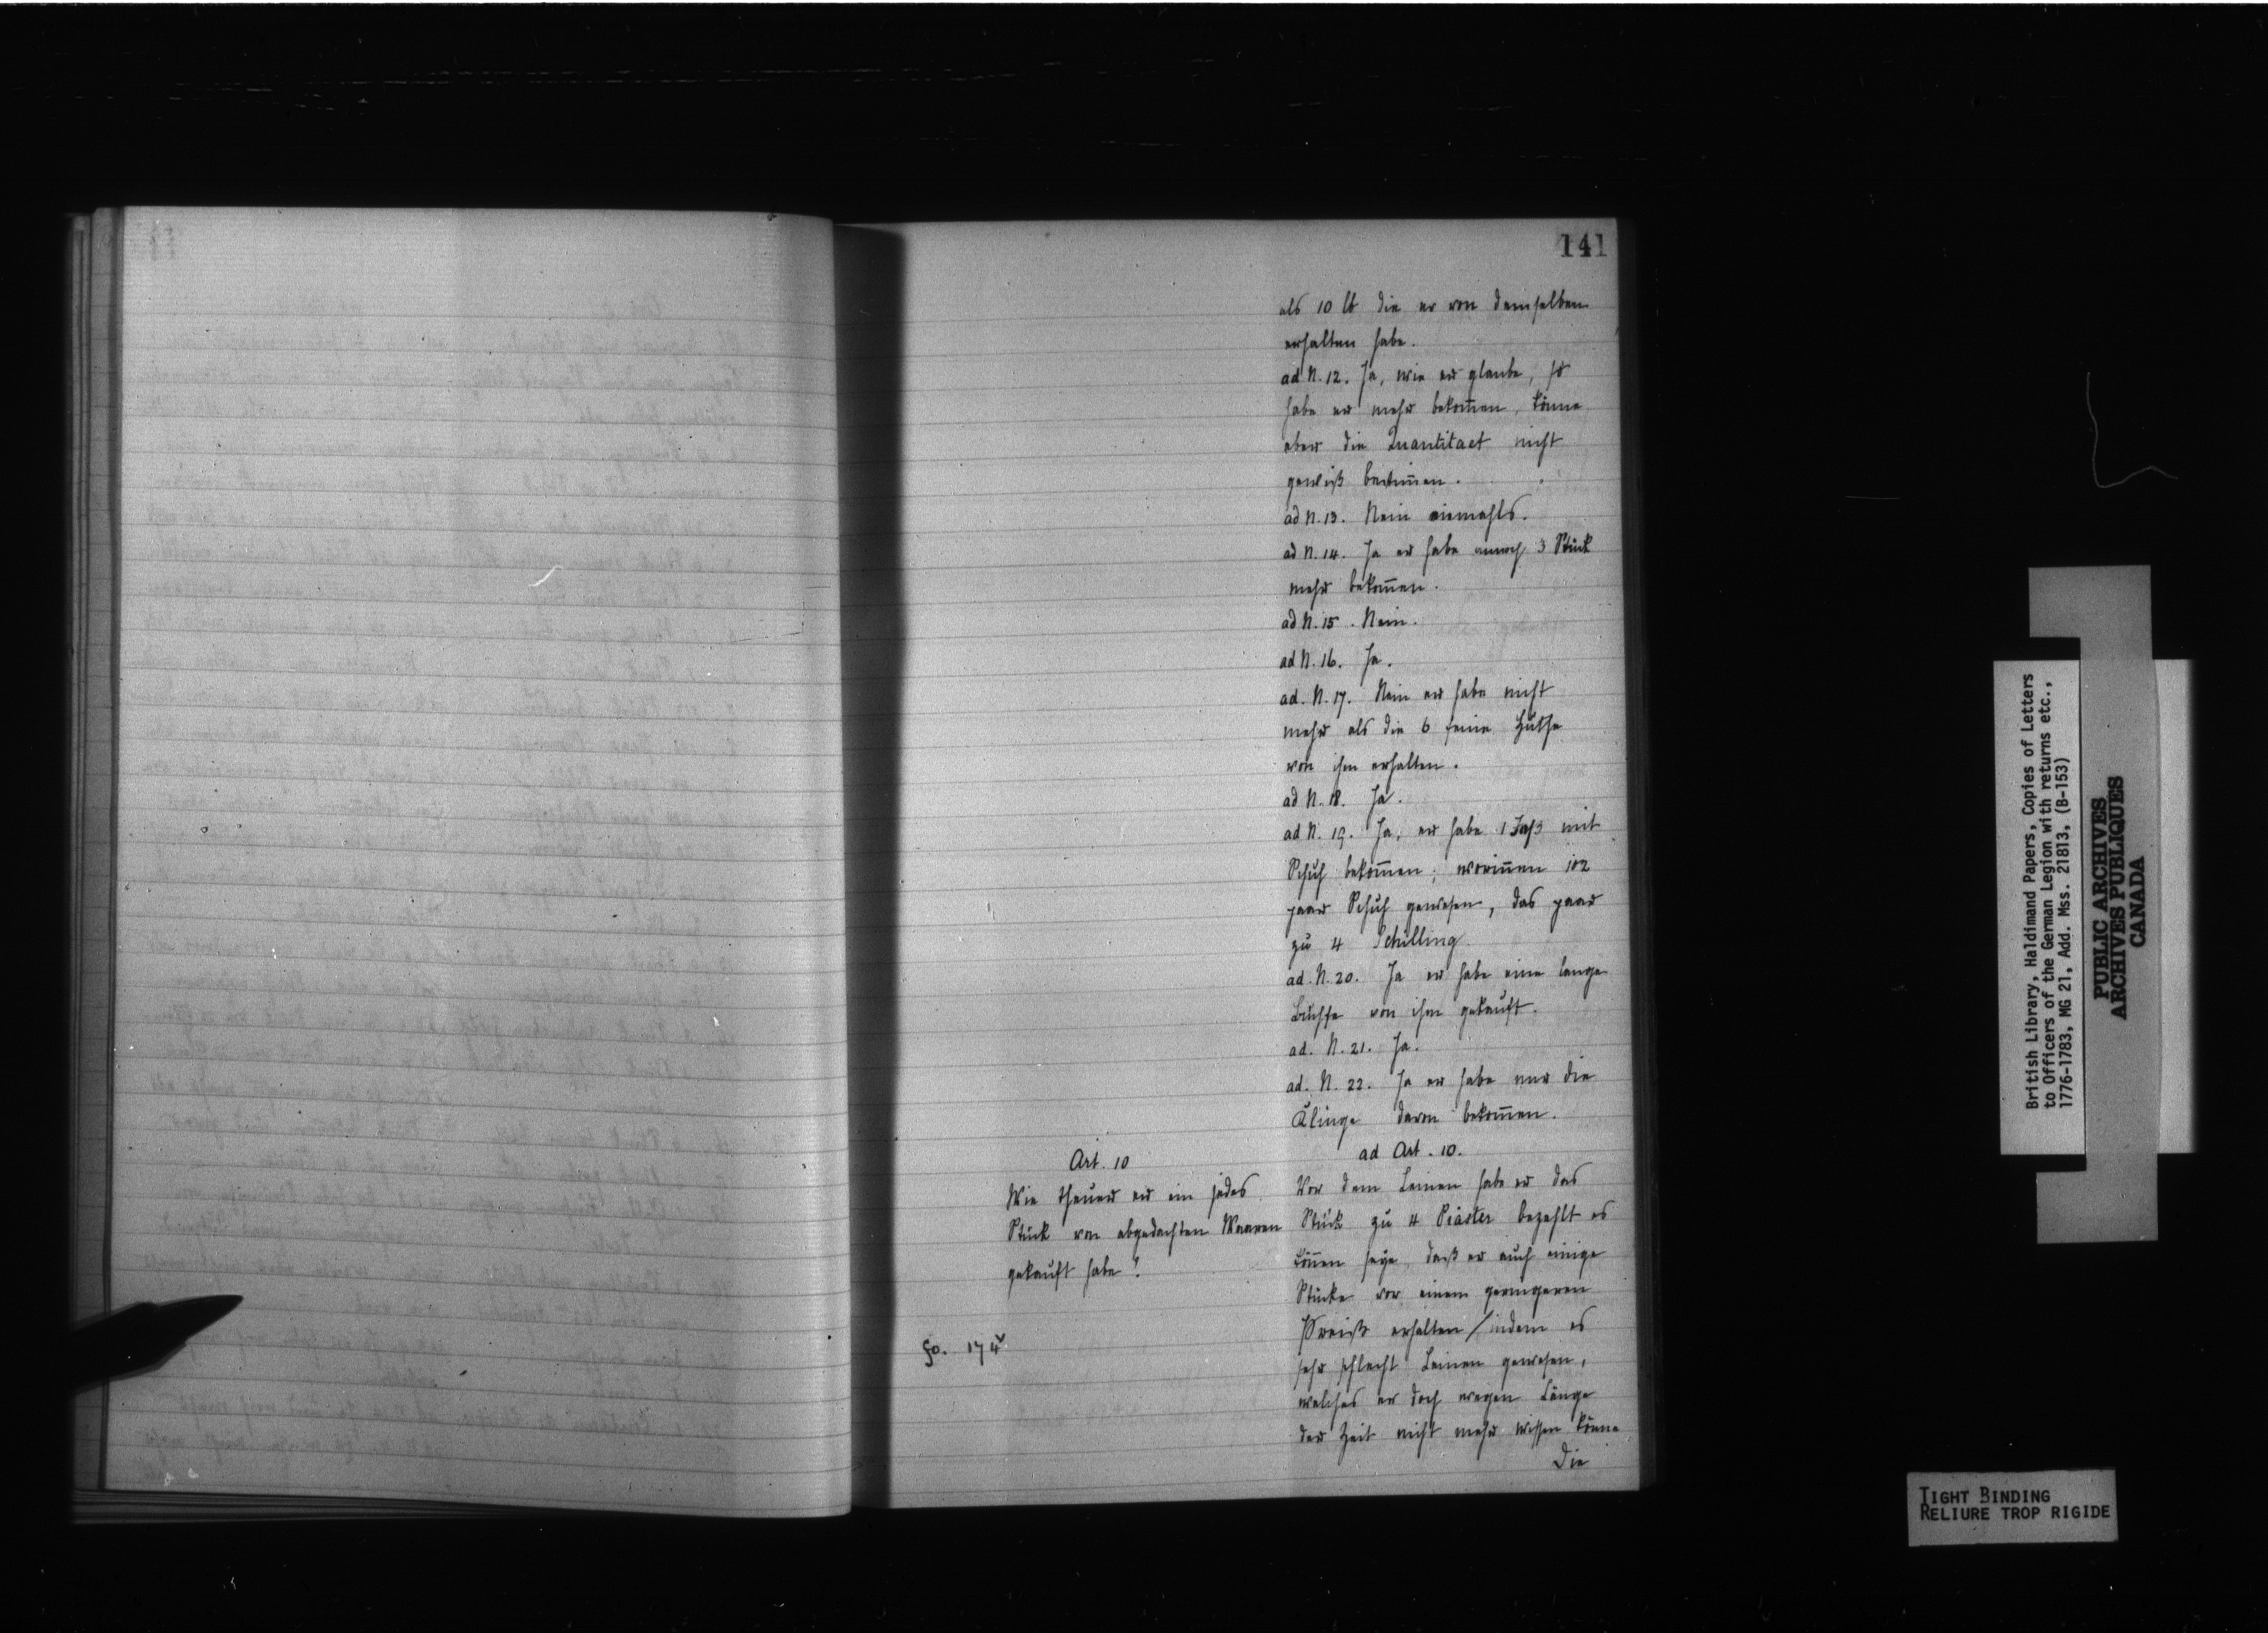 141
als 10 lb die er von demselben
erhalten habe.
ad N. 12. Ja, wie er glaube, so
habe er mehr bekom̄en, könne
aber die Quantitaet nicht
gewiß bestim̄en.
ad N. 13. Nein niemahls.
ad N. 14. Ja er habe annoch 3 Stück
mehr bekom̄en.
ad N. 15. Nein.
ad N. 16. Ja.
ad. N. 17. Nein er habe nicht
mehr als die 6 feine Hüthe
von ihm erhalten.
ad N. 18. Ja.
ad N. 19. Ja, er habe 1 Faß mit
Schuh bekom̄en, worin̄en 102
paar Schuh gewesen, das paar
zu 4 Schilling.
ad. N. 20. Ja er habe eine lange
Büchse von ihm gekauft.
ad. N. 21. Ja.
ad. N. 22. Ja er habe nur die
Klinge davon bekom̄en.
Art. 10
Wie theuer er ein jedes
Stück von abgedachten Waaren
gekauft habe?
fo. 174v
ad Art. 10.
Vor dem Leinen habe er das
Stück zu 4 Piaster bezahlt es
kön̄en seye, daß er auch einige
Stücke vor einem geringeren
Preiß erhalten / indem es
sehr schlecht Leinen gewesen,
welches er doch wegen Länge
der Zeit nicht mehr wissen könne
Die
British Library, Haldimand Papers, Copies of Letters
to Officers of the German Legion with returns etc.,
1776-1783, MG 21, Add. Mss. 21813, (B-153)
PUBLIC ARCHIVES
ARCHIVES PUBLIQUES
CANADA
TIGHT BINDING
RELIURE TROP RIGIDE